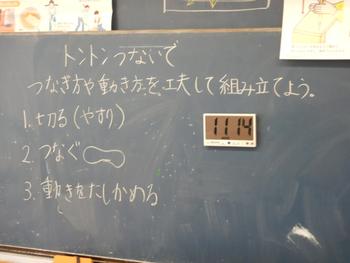 トントンつないで
つなぎ方や動き方を、工夫して組み立てよう。
1. 切る(やすり)
2. つなぐ
3. 動きをたしかめる
11:14